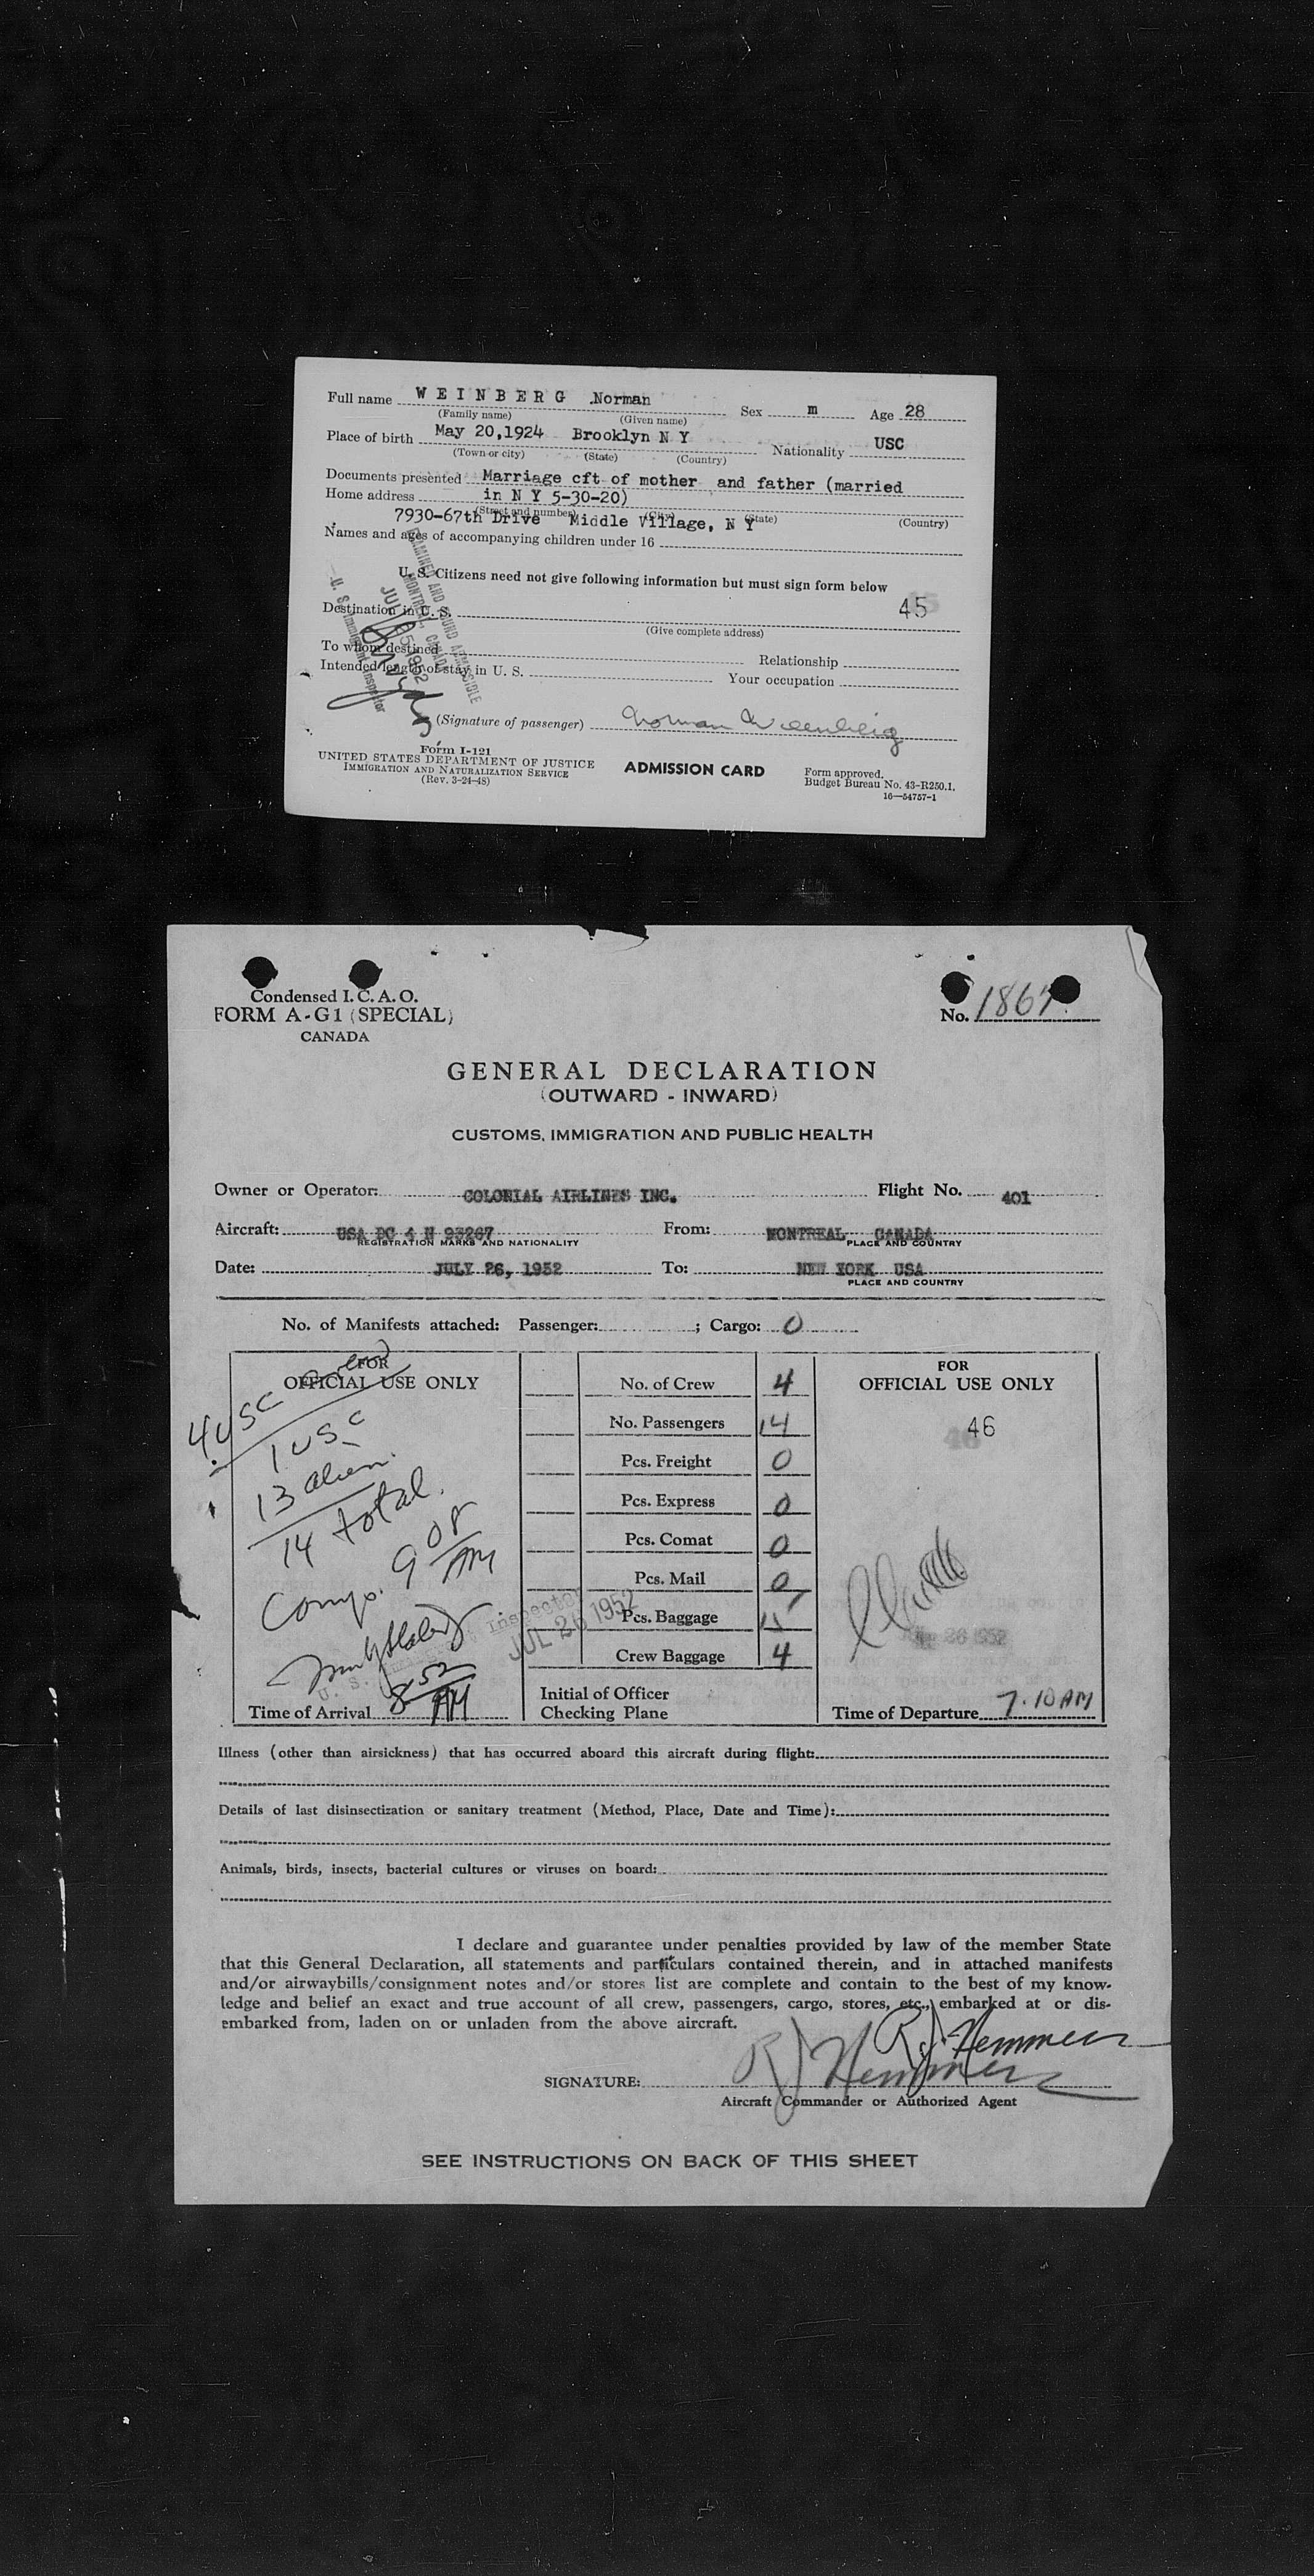 Full name W E I N B E R G Norman Sex m Age 28
(Family name) (Given name)
Place of birth May 20,1924 Brooklyn N Y Nationality USC
(Town or city) (State) (Country)
Documents presented Marriage cft of mother and father (married
Home address in N Y 5-30-20)
(Street and number) (City) (State) (Country)
7930-67th Drive Middle Village, N Y
Names and ages of accompanying children under 16
U. S. Citizens need not give following information but must sign form below
45
Destination in U. S.
(Give complete address)
To whom destined Relationship
Intended length of stay in U. S. Your occupation
EXAMINED AND FOUND ADMISSIBLE
MONTREAL, CANADA
JUL 25 1952
U. S. Immigrant Inspector
(Signature of passenger) Norman Weinberg
Form I-121
UNITED STATES DEPARTMENT OF JUSTICE
IMMIGRATION AND NATURALIZATION SERVICE
(Rev. 3-24-48)
ADMISSION CARD
Form approved.
Budget Bureau No. 43-R250.1.
16—54757-1
Condensed I. C. A. O.
FORM A-G1 (SPECIAL)
CANADA
No. 1867
GENERAL DECLARATION
(OUTWARD - INWARD)
CUSTOMS, IMMIGRATION AND PUBLIC HEALTH
Owner or Operator: COLONIAL AIRLINES INC. Flight No. 401
Aircraft: USA DC 4 N 93267 From: MONTREAL CANADA
REGISTRATION MARKS AND NATIONALITY PLACE AND COUNTRY
Date: JULY 26, 1952 To: NEW YORK USA
PLACE AND COUNTRY
No. of Manifests attached: Passenger: ; Cargo: 0
FOR
OFFICIAL USE ONLY
4 USC crew
1 USC
13 alien.
14 total.
Comp. 9 08 AM
U. S. Inspector
JUL 26 1952
Time of Arrival 8 52 AM
No. of Crew 4
No. Passengers 14
Pcs. Freight 0
Pcs. Express 0
Pcs. Comat 0
Pcs. Mail 0
Pcs. Baggage 15
Crew Baggage 4
Initial of Officer
Checking Plane
FOR
OFFICIAL USE ONLY
46
26 1952
Time of Departure 7.10 AM
Illness (other than airsickness) that has occurred aboard this aircraft during flight:
Details of last disinsectization or sanitary treatment (Method, Place, Date and Time):
Animals, birds, insects, bacterial cultures or viruses on board:
I declare and guarantee under penalties provided by law of the member State
that this General Declaration, all statements and particulars contained therein, and in attached manifests
and/or airwaybills/consignment notes and/or stores list are complete and contain to the best of my know-
ledge and belief an exact and true account of all crew, passengers, cargo, stores, etc., embarked at or dis-
embarked from, laden on or unladen from the above aircraft.
R J Hemmer
SIGNATURE: R J Hemmer
Aircraft Commander or Authorized Agent
SEE INSTRUCTIONS ON BACK OF THIS SHEET